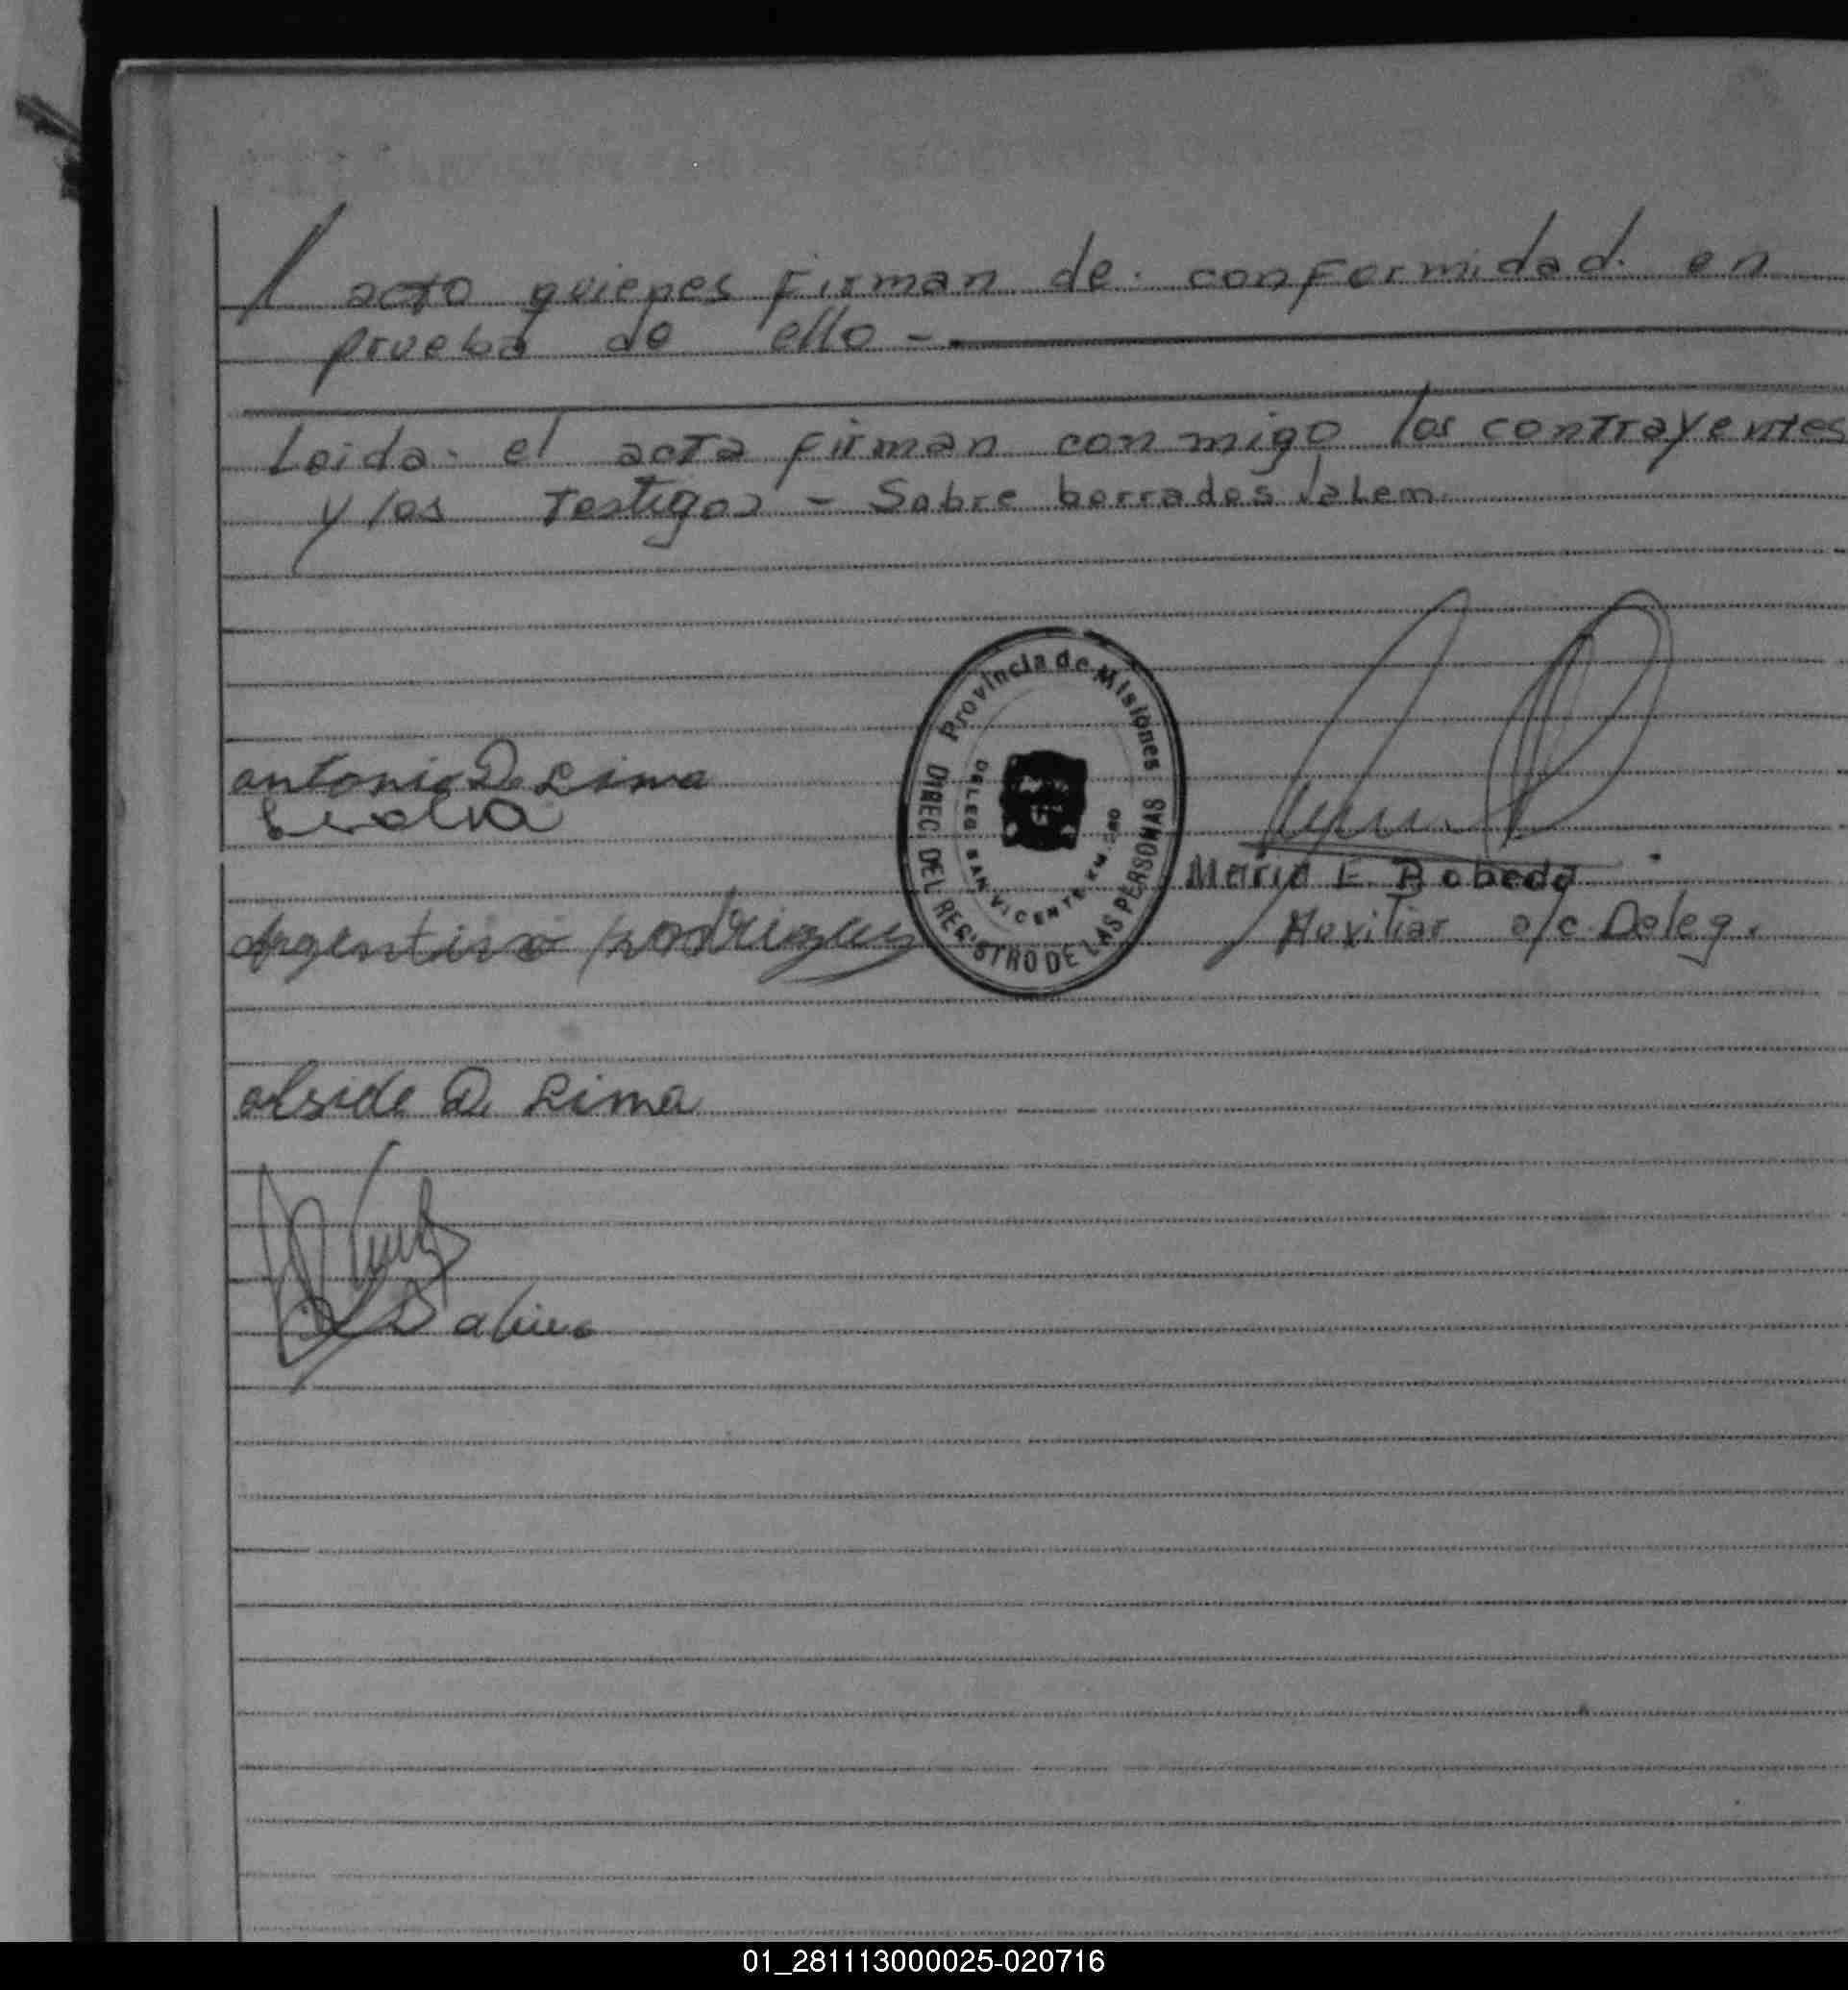 / acto quienes firman de. conformidad. en
prueba de ello -
Leida. el acta firman conmigo los contrayentes
y los Testigos - Sobre borrados Valem.
Provincia de Misiones
DIREC. DEL REGISTRO DE LAS PERSONAS
DELEG. SAN VICENTE KM. 
antonio De Lima
Argentino rodriguez
Mario E. Bobeda
Auxiliar a/c. Deleg.
alside De Lima
01_281113000025-020716